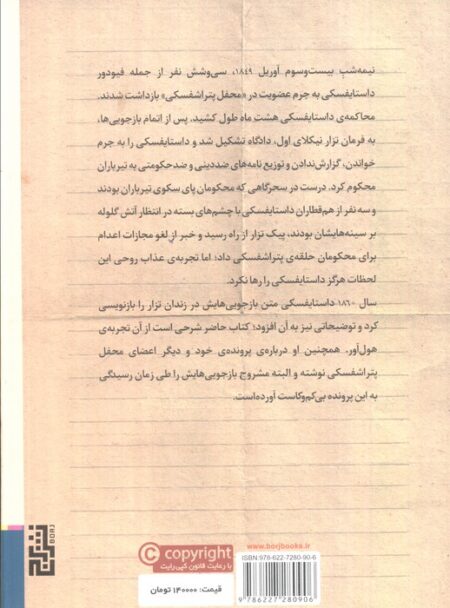 نیمه‌شب بیست‌وسوم آوریل ۱۸۴۹، سی‌وشش نفر از جمله فیودور
داستایفسکی به جرم عضویت در «محفل پتراشفسکی» بازداشت شدند.
محاکمه‌ی داستایفسکی هشت ماه طول کشید. پس از اتمام بازجویی‌ها،
به فرمان تزار نیکلای اول، دادگاه تشکیل شد و داستایفسکی را به جرم
خواندن، گزارش‌ندادن و توزیع نامه‌های ضددینی و ضدحکومتی به تیرباران
محکوم کرد. درست در سحرگاهی که محکومان پای سکوی تیرباران بودند
و سه نفر از هم‌قطاران داستایفسکی با چشم‌های بسته در انتظار آتش گلوله
بر سینه‌هایشان بودند، پیک تزار از راه رسید و خبر از لغو مجازات اعدام
برای محکومان حلقه‌ی پتراشفسکی داد؛ اما تجربه‌ی عذاب روحی این
لحظات هرگز داستایفسکی را رها نکرد.
سال ۱۸۶۰ داستایفسکی متن بازجویی‌هایش در زندان تزار را بازنویسی
کرد و توضیحاتی نیز به آن افزود؛ کتاب حاضر شرحی است از آن تجربه‌ی
هول‌آور. همچنین او درباره‌ی پرونده‌ی خود و دیگر اعضای محفل
پتراشفسکی نوشته و البته مشروح بازجویی‌هایش را طی زمان رسیدگی
به این پرونده بی‌کم‌وکاست آورده‌است.
BORJ
برج
© copyright
با رعایت قانون کپی‌رایت
قیمت: ۱۴۰۰۰۰ تومان
www.borjbooks.ir
ISBN: 978-622-7280-90-6
9 786227 280906